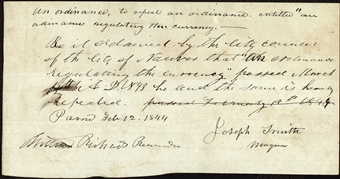 An ordinance, to repeal an ordinance, entitled "an
ordinance regulating the currency.
Be it ordained by the City council
of the City of Nauvoo that "An ordinance
regulating the currency" passed March
4th A.D. 1843 be and the same is hereby
repealed. passed February 12th 1844
Passed Feb 12. 1844
Joseph Smith
Mayor
Willard Richards Recorder